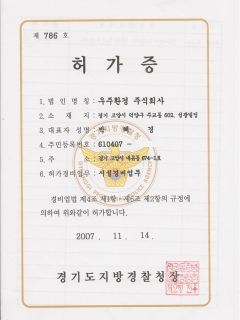 제 786 호
허 가 증
1. 법 인 명 칭 : 우주환경 주식회사
2. 소 재 지 : 경기 고양시 덕양구 주교동 602,
3. 대표자 성명 : 박 경
4. 주민등록번호 : 610407 -
5. 주 소 : 경기 고양시 내유동 674-1호
6. 허가경비업무 : 시설경비업무
경비업법 제4조 제1항 · 제6조 제2항의 규정에
의하여 위와같이 허가합니다.
2007. 11. 14.
경기도지방경찰청장